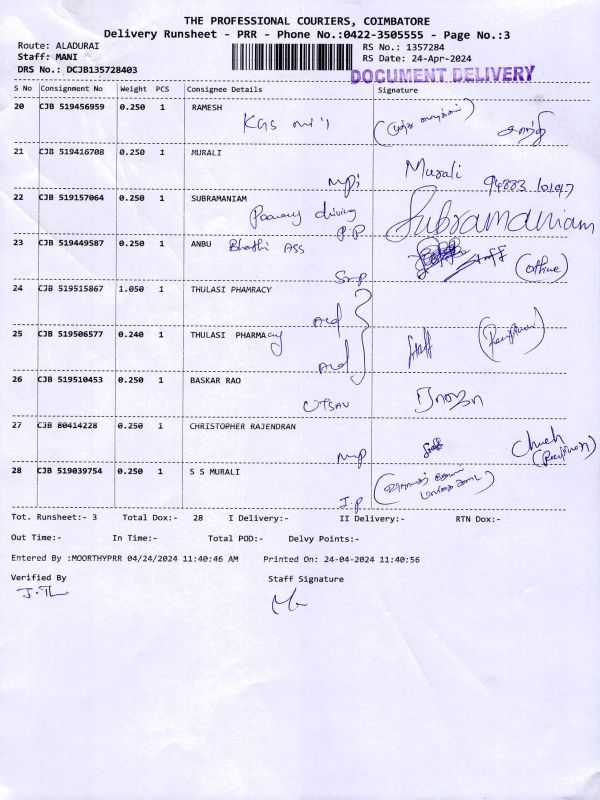 THE PROFESSIONAL COURIERS, COIMBATORE
Delivery Runsheet - PRR - Phone No.:0422-3505555 - Page No.:3
Route: ALADURAI
RS No.: 1357284
Staff: MANI
RS Date: 24-Apr-2024
DRS No.: DCJB135728403
DOCUMENT DELIVERY
S No Consignment No Weight PCS Consignee Details Signature
20 CJB 519456959 0.250 1 RAMESH
KGS
21 CJB 519416708 0.250 1 MURALI
Murali
22 CJB 519157064 0.250 1 SUBRAMANIAM
driving Subramaniam
P.P
23 CJB 519449587 0.250 1 ANBU Bharthi ASS
Staff (Office)
24 CJB 519515867 1.050 1 THULASI PHAMRACY
25 CJB 519506577 0.240 1 THULASI PHARMACY
Staff
26 CJB 519510453 0.250 1 BASKAR RAO
UTSAV
27 CJB 80414228 0.250 1 CHRISTOPHER RAJENDRAN
Staff
28 CJB 519039754 0.250 1 S S MURALI
I.P
Tot. Runsheet:- 3 Total Dox:- 28 I Delivery:- II Delivery:- RTN Dox:-
Out Time:- In Time:- Total POD:- Delvy Points:-
Entered By :MOORTHYPRR 04/24/2024 11:40:46 AM Printed On: 24-04-2024 11:40:56
Verified By Staff Signature